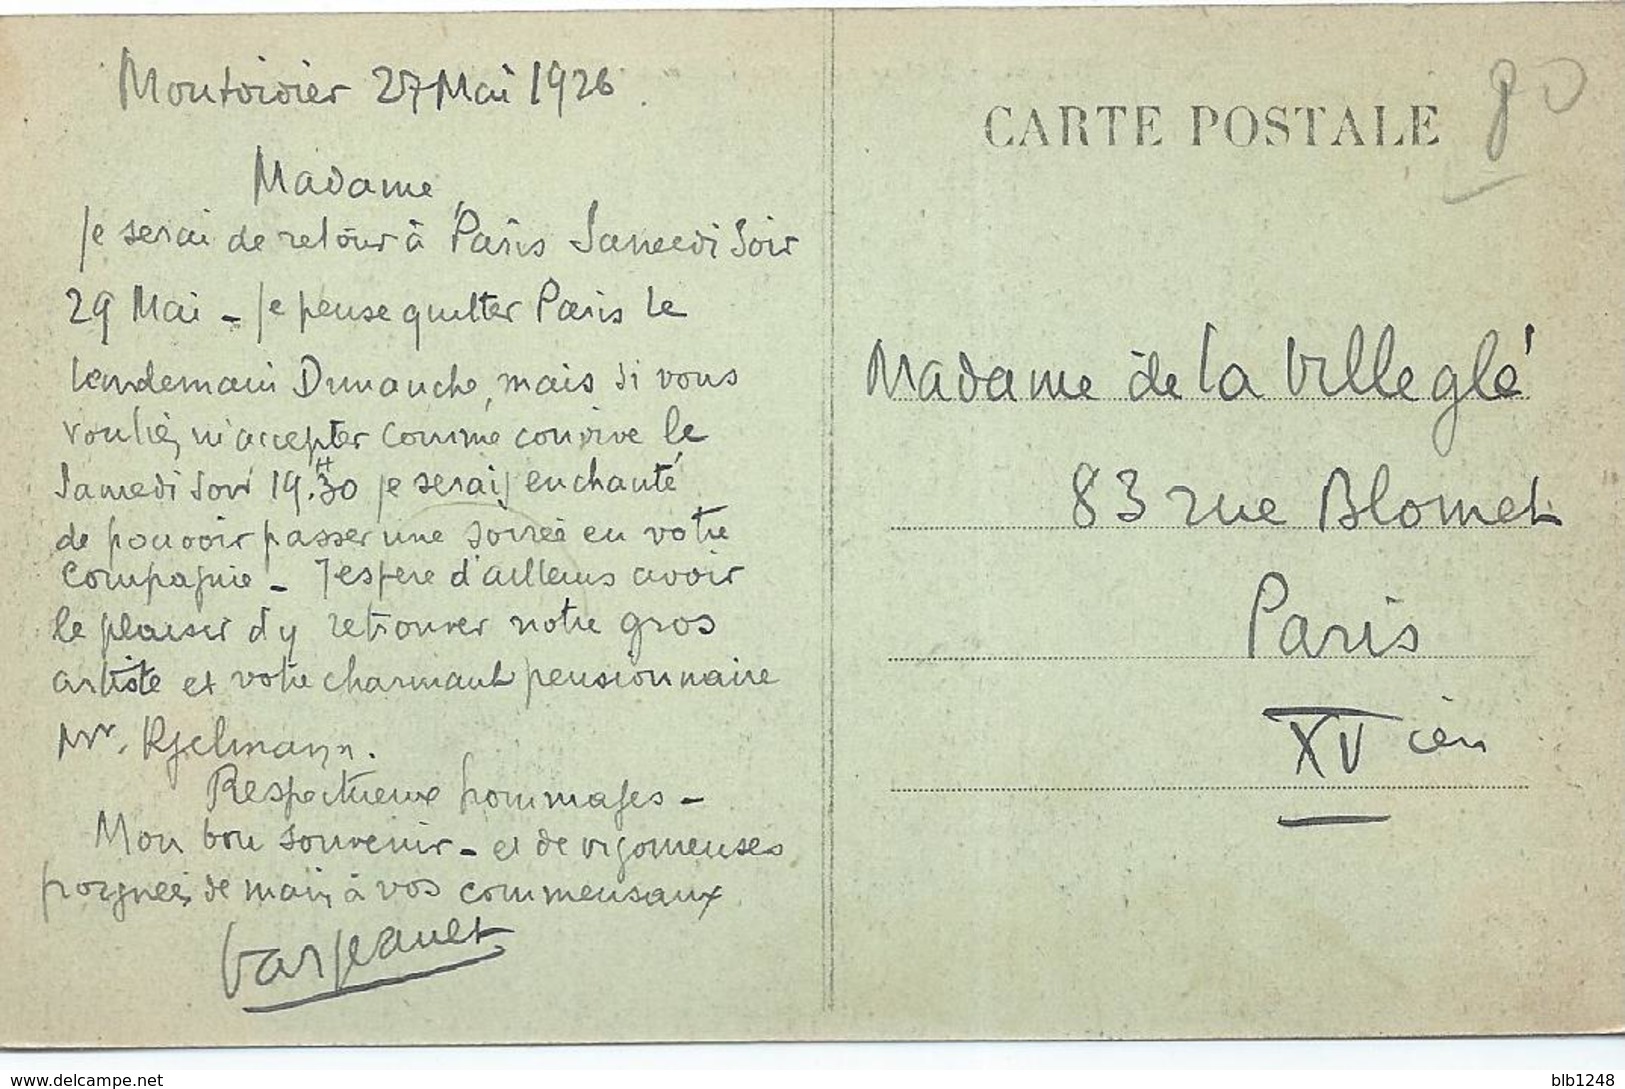 Montdidier 27 Mai 1926.
Madame,
Je serai de retour à Paris Samedi soir
29 Mai - Je pense quitter Paris le
lendemain Dimanche, mais si vous
vouliez m'accepter comme convive le
Samedi soir 19.H30 je serais enchanté
de pouvoir passer une soirée en votre
compagnie - J'espère d'ailleurs avoir
le plaisir d'y retrouver notre gros
artiste et votre charmant pensionnaire
Mr. Kjelmann.
Respectueux hommages -
Mon bon souvenir - et de vigoureuses
poignées de mains à vos commensaux
CARTE POSTALE
80
Madame de la Villeglé
83 rue Blomet
Paris
XV ièm
delcampe.net
blb1248